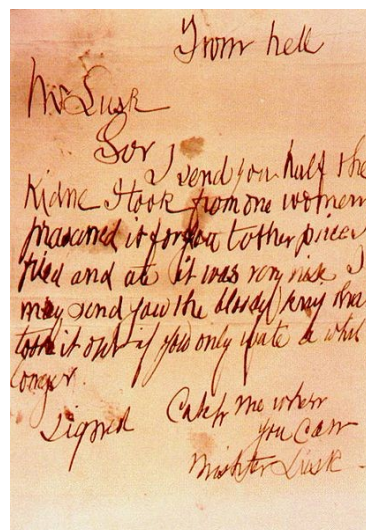 From hell
Mr Lusk
Sor
I send you half the
Kidne I took from one women
prasarved it for you tother piece I
fried and ate it was very nise I
may send you the bloody knif that
took it out if you only wate a whil
longer.
signed
Catch me when
you can
Mishter Lusk